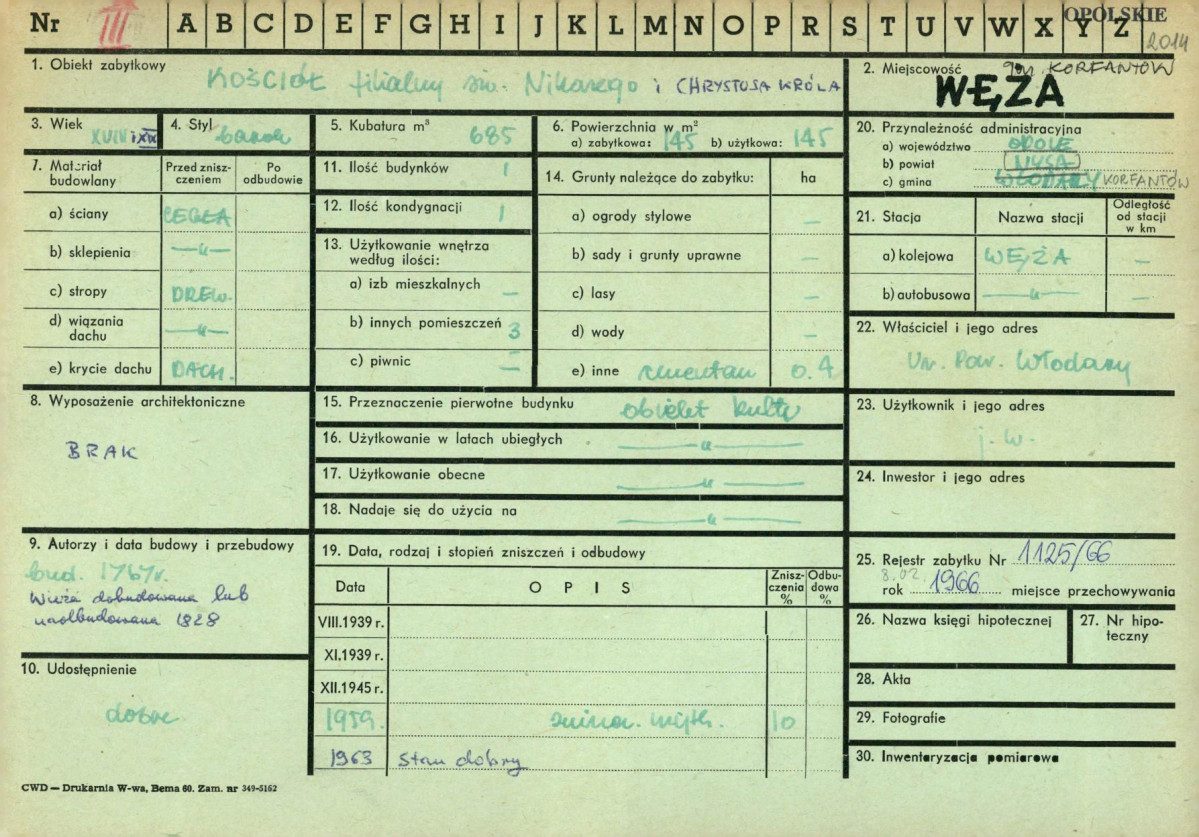 Nr III A B C D E F G H I J K L M N O P R S T U V W X Y Z OPOLSKIE
2014
1. Obiekt zabytkowy KOŚCIÓŁ filialny św. Nikazego i CHRYSTUSA KRÓLA
2. Miejscowość gm. KORFANTÓW
WĘŻA
3. Wiek XVIII i XIX
4. Styl barok
5. Kubatura m³ 685
6. Powierzchnia w m²
a) zabytkowa: 145 b) użytkowa: 145
20. Przynależność administracyjna
a) województwo OPOLE
b) powiat NYSA
c) gmina WŁODARY KORFANTÓW
7. Materiał budowlany
Przed zniszczeniem
Po odbudowie
a) ściany CEGŁA
b) sklepienia —„—
c) stropy DREW.
d) wiązania dachu —„—
e) krycie dachu DACH.
11. Ilość budynków 1
12. Ilość kondygnacji 1
13. Użytkowanie wnętrza
według ilości:
a) izb mieszkalnych —
b) innych pomieszczeń 3
c) piwnic —
14. Grunty należące do zabytku: ha
a) ogrody stylowe —
b) sady i grunty uprawne —
c) lasy —
d) wody —
e) inne cmentarz 0.4
21. Stacja
Nazwa stacji
Odległość od stacji w km
a) kolejowa WĘŻA —
b) autobusowa —„— —
22. Właściciel i jego adres
Par. Włodary
8. Wyposażenie architektoniczne
BRAK
15. Przeznaczenie pierwotne budynku obiekt kultu
16. Użytkowanie w latach ubiegłych —„—
17. Użytkowanie obecne —„—
18. Nadaje się do użycia na —„—
23. Użytkownik i jego adres
j. w.
24. Inwestor i jego adres
9. Autorzy i data budowy i przebudowy
bud. 1767r.
Wieża dobudowana lub
nadbudowana 1828
10. Udostępnienie
dobre
19. Data, rodzaj i stopień zniszczeń i odbudowy
Data
OPIS
Zniszczenia %
Odbudowa %
VIII.1939 r.
XI.1939 r.
XII.1945 r.
1959. 10
1963 stan dobry
25. Rejestr zabytku Nr 1125/66
8.02.
rok 1966 miejsce przechowywania
26. Nazwa księgi hipotecznej
27. Nr hipoteczny
28. Akta
29. Fotografie
30. Inwentaryzacja pomiarowa
CWD — Drukarnia W-wa, Bema 60. Zam. nr 349-5162